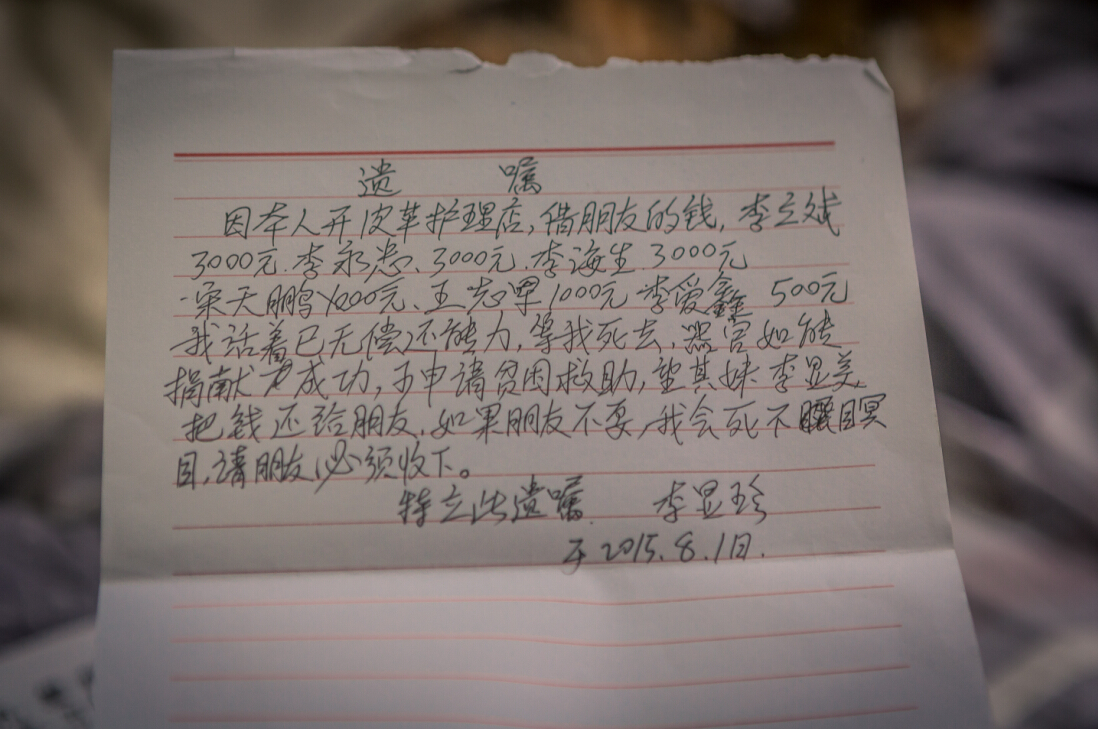 遗 嘱
因本人开皮革护理店,借朋友的钱,李立斌
3000元.李永忠、3000元.李海生 3000元
宋天鹏1000元、王志军1000元 李爱鑫 500元
我活着已无偿还能力,等我死去,器官如能
捐献成功,于申请贫困救助,望其妹李显美
把钱还给朋友.如果朋友不要,我会死不瞑
目,请朋友必须收下。
特立此遗嘱. 李显珍
于2015.8.1日.